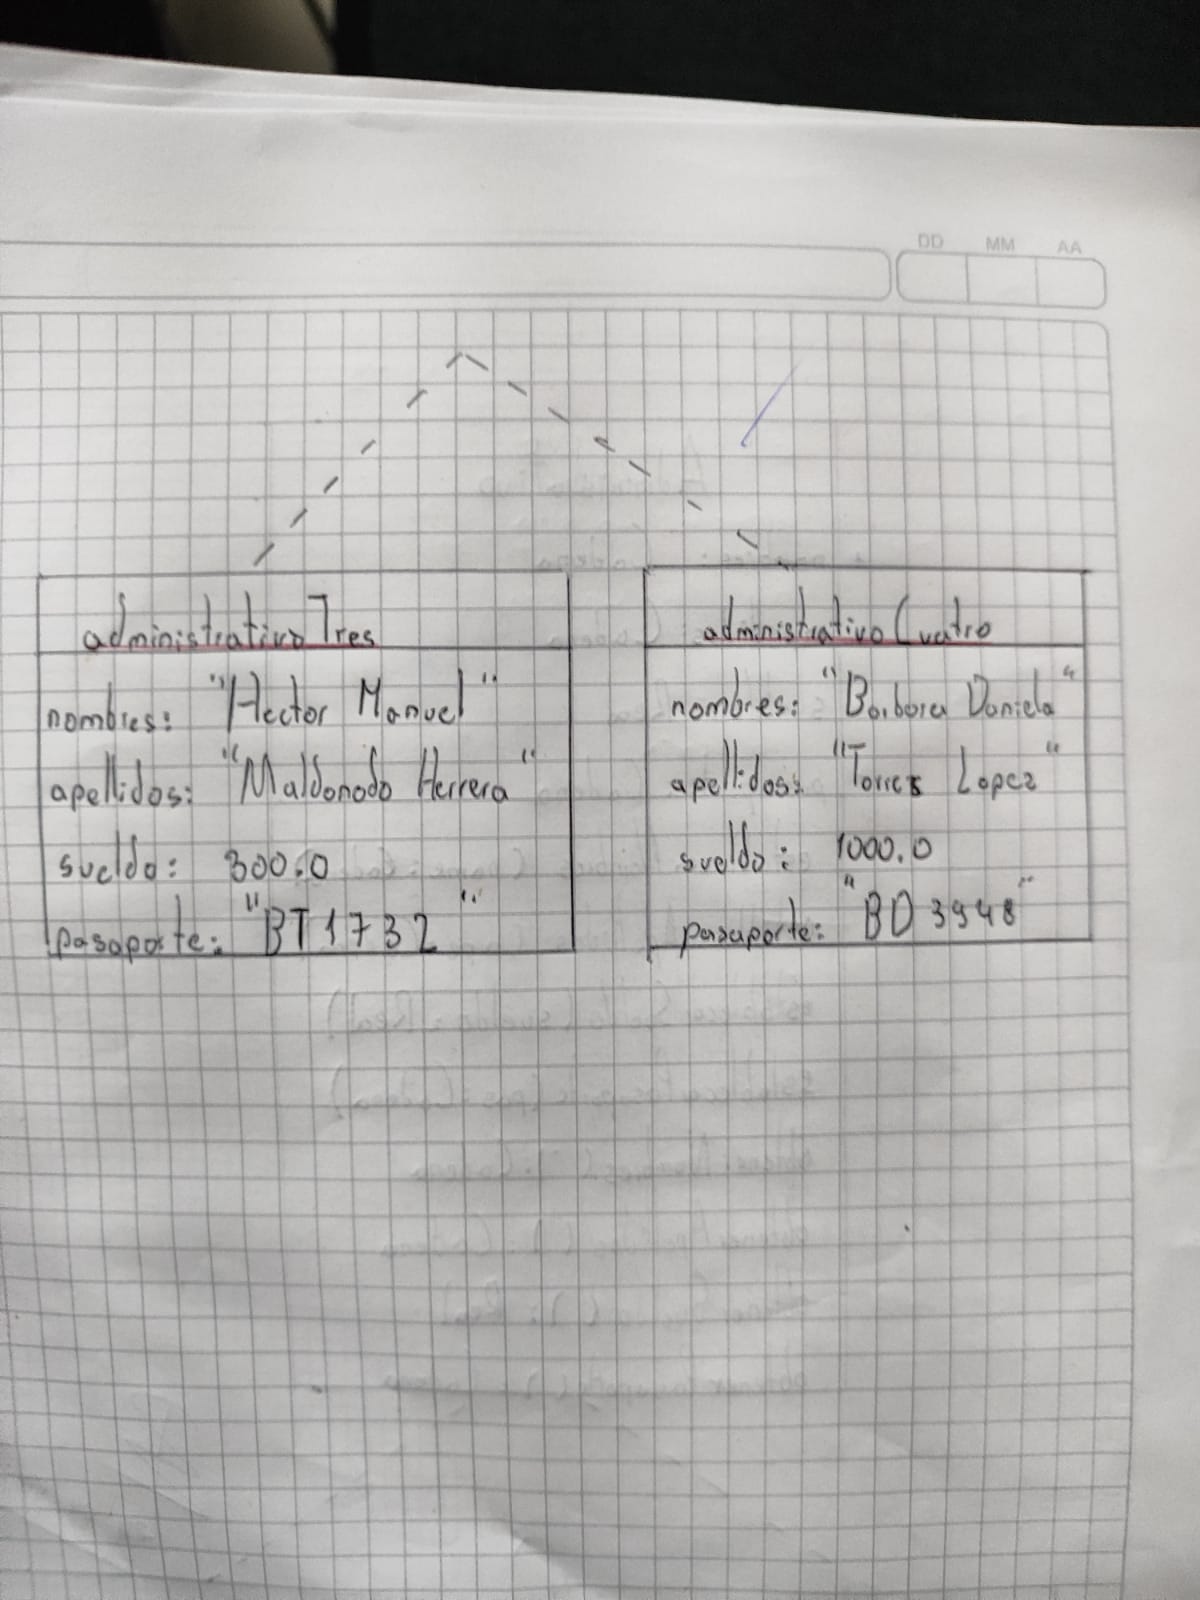 DD MM AA
administrativoTres
nombres: "Hector Manuel"
apellidos: "Maldonado Herrera"
sueldo: 300.0
pasaporte: "BT1732"
administrativoCuatro
nombres: "Barbara Daniela"
apellidos: "Torres Lopez"
sueldo: 1000.0
pasaporte: "BD3948"